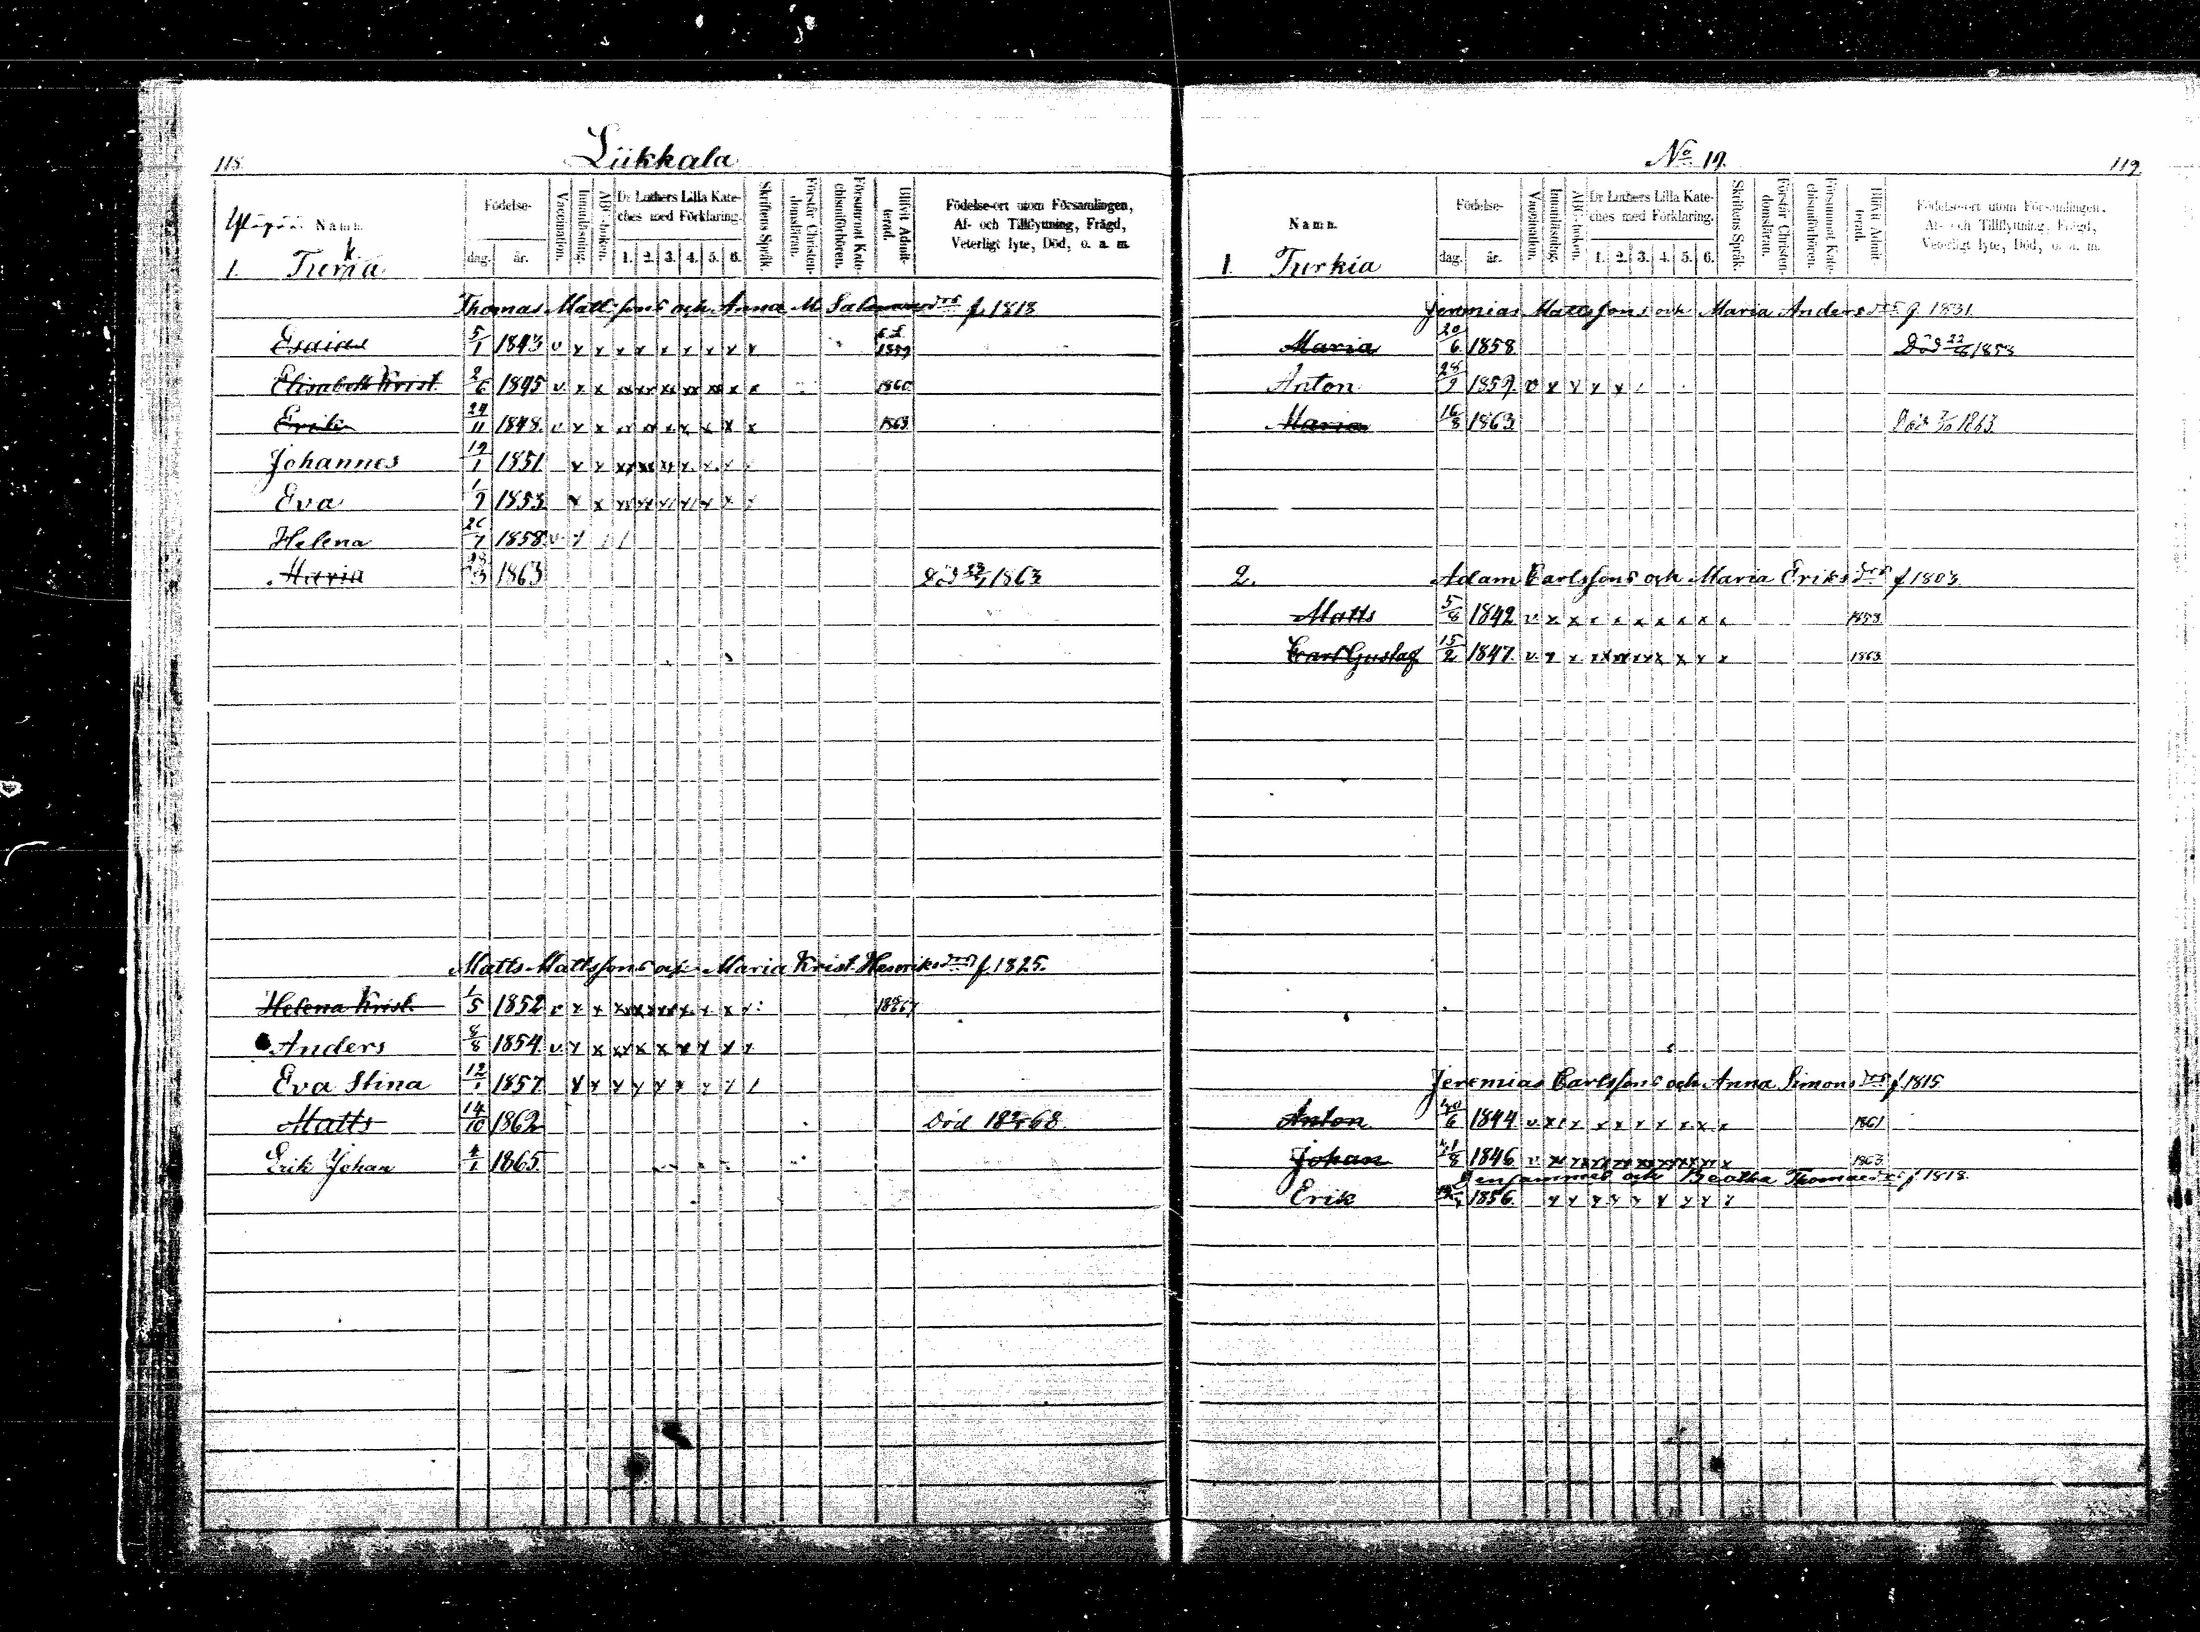 118.
Liikkala
Namn.
Födelse-
dag.
år.
Vaccination.
Innanläsning.
ABC-boken.
Dr Luthers Lilla Kate-
ches med Förklaring.
1. 2. 3. 4. 5. 6.
Skriftens Språk.
Förstår Christen-
domsläran.
Försummat Kate-
chismiförhören.
Blifvit Admit-
terad.
Födelse-ort utom Församlingen,
Af- och Tillflyttning, Frägd,
Veterligt lyte, Död, o. a. m.
1.
Thomas Mattssons och Anna M. f. 1818
Esaias 5/1 1843 v x x x x x x x x x 1859
Elisabeth Krist. 2/6 1845 v x x xx xx xx xx xx x x 1860
24/11 1848 v x x xx xx x x x x x 1863
Johannes 19/1 1851 x x xx xx xx x x x x
Eva 1/9 1853 x x xx xx x x x x x
Helena 26/7 1858 v x
Maria 1863 Död 1863
Matts Mattssons och Maria Krist. Henriksdr f 1825.
Helena Krist. 1/5 1852 v x x 1867
Anders 8/8 1854 v x x xx x x x x x x
Eva Stina 12/1 1857 x x x x x x x x
Matts 14/10 1862 Död 68
Erik Johan 4/1 1865
No 19.
119
Namn.
Födelse-
dag.
år.
Vaccination.
Innanläsning.
ABC-boken.
Dr Luthers Lilla Kate-
ches med Förklaring.
1. 2. 3. 4. 5. 6.
Skriftens Språk.
Förstår Christen-
domsläran.
Försummat Kate-
chismiförhören.
Blifvit Admit-
terad.
Födelse-ort utom Församlingen,
Af- och Tillflyttning, Frägd,
Veterligt lyte, Död, o. a. m.
1. Turkia
Jeremias Mattssons och Maria Andersdr f. 1831
Maria 20/6 1858 Död 1858
Anton 28/9 1859 v x x x x
Maria 16/8 1863 Död 1863
2. Adam Carlssons och Maria Eriksdr f 1803.
Matts 5/8 1842 v x x x x x x x x x 1858
Carl Gustaf 15/2 1847 v x x 1863
Jeremias Carlssons och Anna Simonsdr f 1815
Anton 1844 v 1861
Johan 1846 v 1863
Densammes och Beatha Thomasdr f 1818
Erik 1856 x x x x x x x x x